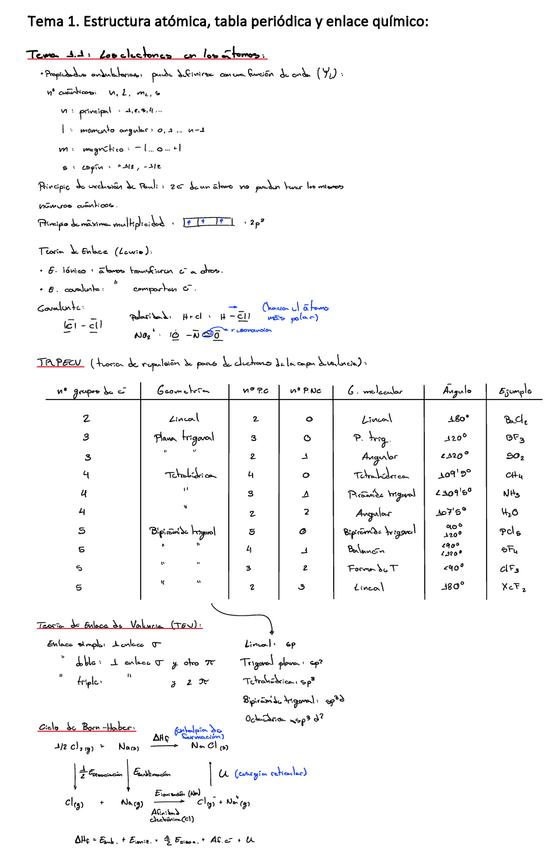 Tema 1. Estructura atómica, tabla periódica y enlace químico:
Tema 1.1: Los electrones en los átomos:
• Propiedades ondulatorias: puede definirse con una función de onda (Ψ):
nº cuánticos: n, l, mₗ, s
n : principal : 1,2,3,4...
l : momento angular: 0, 1 ... n-1
m : magnético: -l ... 0 ... +l
s : espín: +1/2, -1/2
Principio de exclusión de Pauli: 2 e⁻ de un átomo no pueden tener los mismos
números cuánticos.
Principio de máxima multiplicidad: 2p³
Teoría de Enlace (Lewis):
• E. Iónico: átomos transfieren e⁻ a otros.
• E. covalente: " comparten e⁻.
Covalente: Polaridad: H + Cl : H - Cl (hacia el átomo
más polar)
Cl - Cl NO₂⁻ : O - N O resonancia
TRPECV (teoría de repulsión de pares de electrones de la capa de valencia):
nº grupos de e⁻ Geometría nº P.C nº P.NC G. molecular Ángulo Ejemplo
2 Lineal 2 0 Lineal 180° BaCl₂
3 Plana trigonal 3 0 P. trig. 120° BF₃
3 " " 2 1 Angular <120° SO₂
4 Tetraédrica 4 0 Tetraédrica 109'5° CH₄
4 " 3 1 Pirámide trigonal <109'5° NH₃
4 " 2 2 Angular 107'5° H₂O
5 Bipirámide trigonal 5 0 Bipirámide trigonal 90° 120° PCl₅
5 " " 4 1 Balancín <90° <120° SF₄
5 " " 3 2 Forma de T <90° ClF₃
5 " " 2 3 Lineal 180° XeF₂
Teoría de Enlace de Valencia (TEV):
Enlace simple: 1 enlace σ
" doble: 1 enlace σ y otro π
" triple: " y 2 π
Lineal: sp
Trigonal plana: sp²
Tetraédrica: sp³
Bipirámide trigonal: sp³d
Octaédrica: sp³d²
Ciclo de Born-Haber:
1/2 Cl₂(g) + Na(s) ΔHf (entalpía de formación) NaCl(s)
1/2 Edisociación Esublimación U (energía reticular)
Cl(g) + Na(g) Eionización (Na) Afinidad electrónica (Cl) Cl⁻(g) + Na⁺(g)
ΔHf = Esub. + Eioniz. + 1/2 Edison. + Af. e⁻ + U